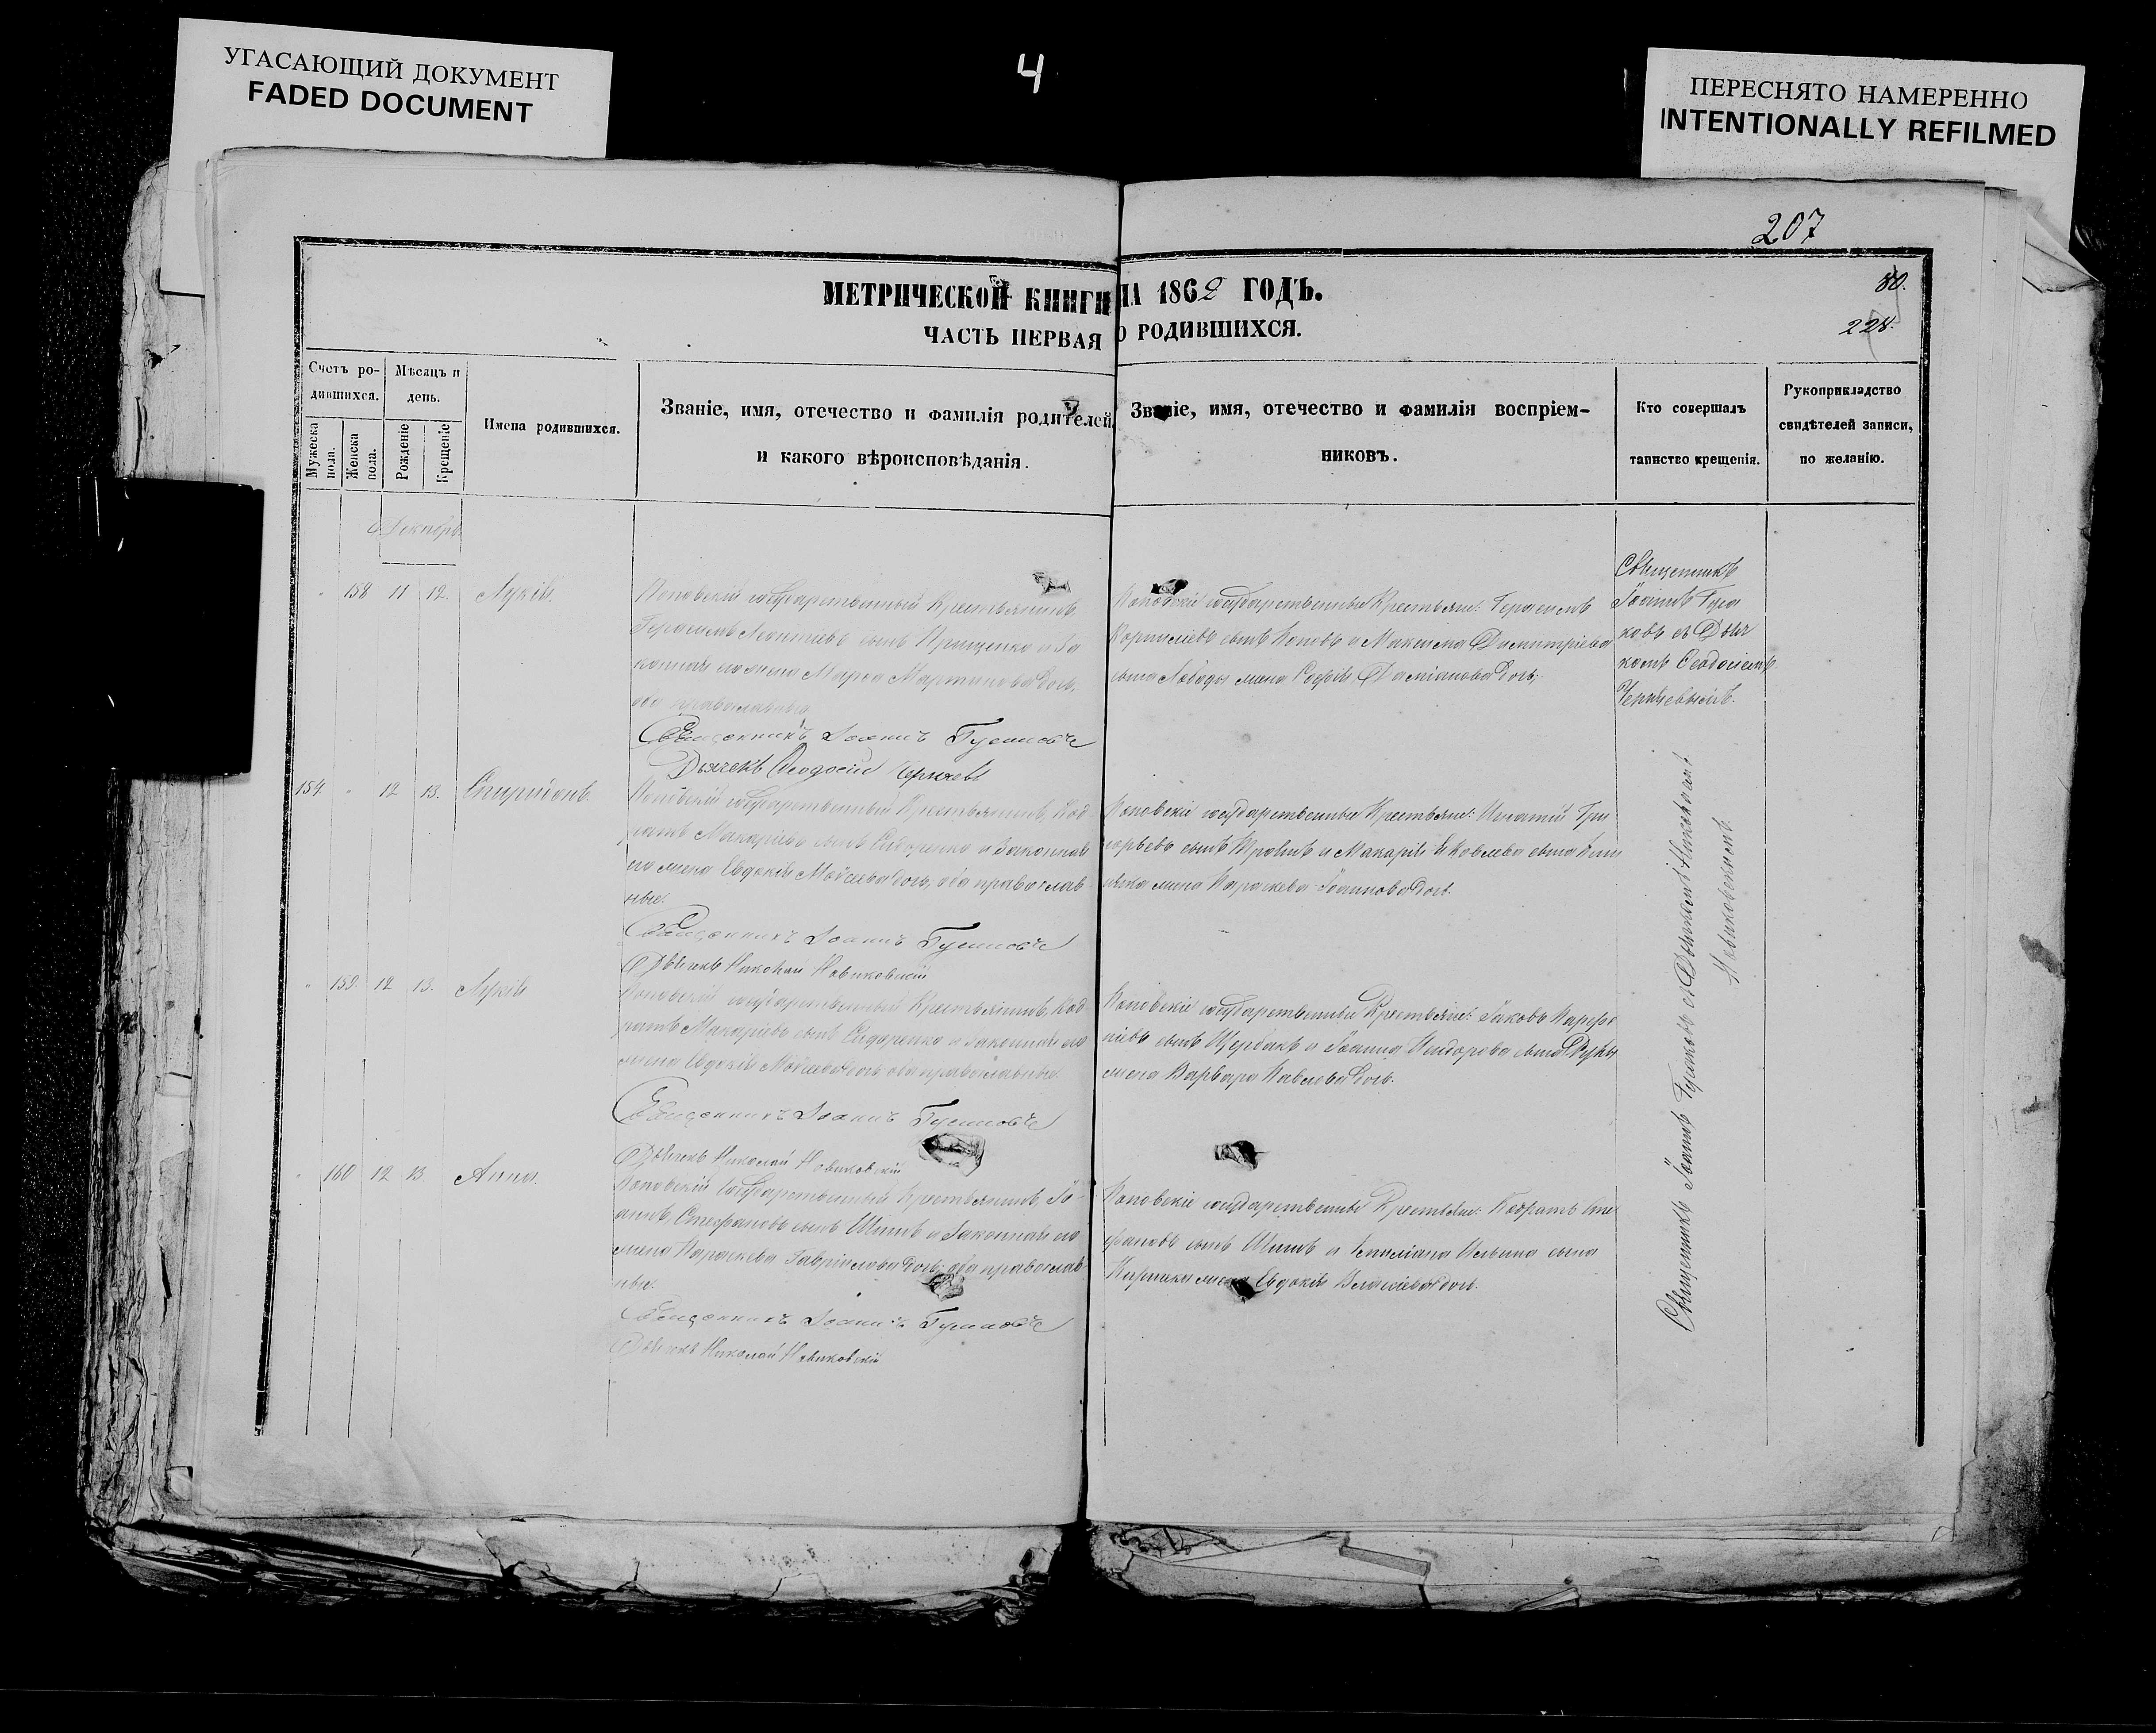 УГАСАЮЩИЙ ДОКУМЕНТ
FADED DOCUMENT
4
ПЕРЕСНЯТО НАМЕРЕННО
INTENTIONALLY REFILMED
207
80.
228.
МЕТРИЧЕСКОЙ КНИГИ НА 1862 ГОДЪ.
ЧАСТЬ ПЕРВАЯ О РОДИВШИХСЯ.
Счетъ ро-
дившихся.
Мужеска пола.
Женска пола.
Мѣсяцъ и
день.
Рожденіе
Крещеніе
Имена родившихся.
Званіе, имя, отечество и фамилія родителей,
и какого вѣроисповѣданія.
Званіе, имя, отечество и фамилія воспріем-
никовъ.
Кто совершалъ
таинство крещенія.
Рукоприкладство
свидѣтелей записи,
по желанію.
Декабрь
" 158 11 12. Лукія.
Поповскій государственный Крестьянинъ
Герасимъ Леонтіевъ сынъ Прищенко и За
конная его жена Марѳа Мартинова дочь,
оба православные
Священникъ Іоаннъ Гусаковъ
Дьячекъ Ѳеодосій
Поповскіе государственные Крестьяне: Герасимъ
Корниліевъ сынъ Поповъ и Максима Димитріева
сына Лободы жена Софія Даміанова дочь,
Священникъ
Іоаннъ Гуса
ковъ съ Дьяч
комъ Ѳеодосіемъ
154. " 12 13. Спиридонъ.
Поповскій государственный Крестьянинъ, Код
ратъ Макаріевъ сынъ Сидоренко и Законная
его жена Евдокія Мойсеева дочь, оба православ
ные.
Священникъ Іоаннъ Гусаковъ
Дьячекъ Николай Новиковскій
Поповскіе государственные Крестьяне: Игнатій Гри
горьевъ сынъ и Макарія Яковлева сына
жена Параскева Іоаннова дочь.
" 159. 12 13. Лукія
Поповскій государственный Крестьянинъ, Код
ратъ Макаріевъ сынъ Сидоренко и Законная его
жена Евдокія Мойсеева дочь оба православные.
Священникъ Іоаннъ Гусаковъ
Дьячекъ Николай Новиковскій
Поповскіе государственные Крестьяне: Іаковъ Парѳе
ніевъ сынъ Щербакъ и Іоанна Исидорова сына
жена Варвара Павлова дочь.
" 160 12 13 Анна.
Поповскій государственный Крестьянинъ, Іо-
аннъ, Стефановъ сынъ Шишъ и Законная его
жена Параскева Гавріилова дочь, оба православ
ные.
Священникъ Іоаннъ Гусаковъ
Дьячекъ Николай Новиковскій
Поповскіе государственные Крестьяне: Кодратъ Сте
фановъ сынъ Шишъ и Емиліана Ильина сына
жена Евдокія Власіева дочь.
Священникъ Іоаннъ Гусаковъ съ Дьячкомъ Николаемъ
Новиковскимъ.